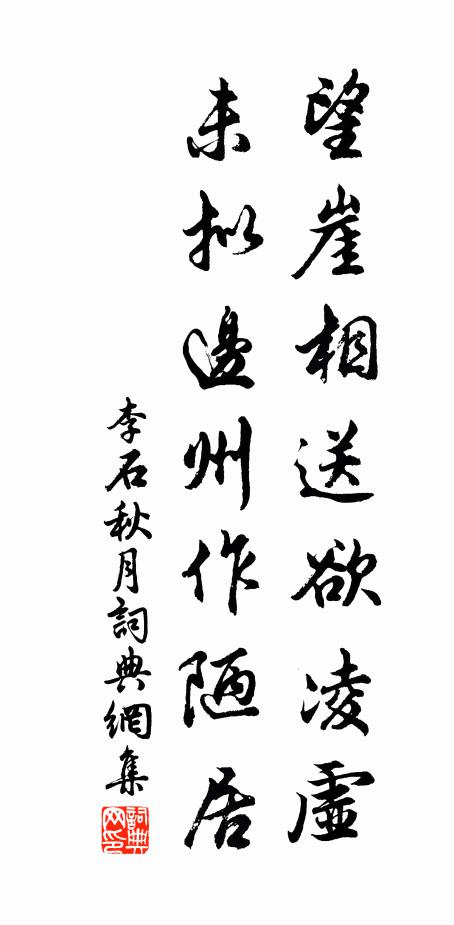 望崖相送欲凌虛
未拟邊州作陋居
李石秋月詞典網集
詞典网印